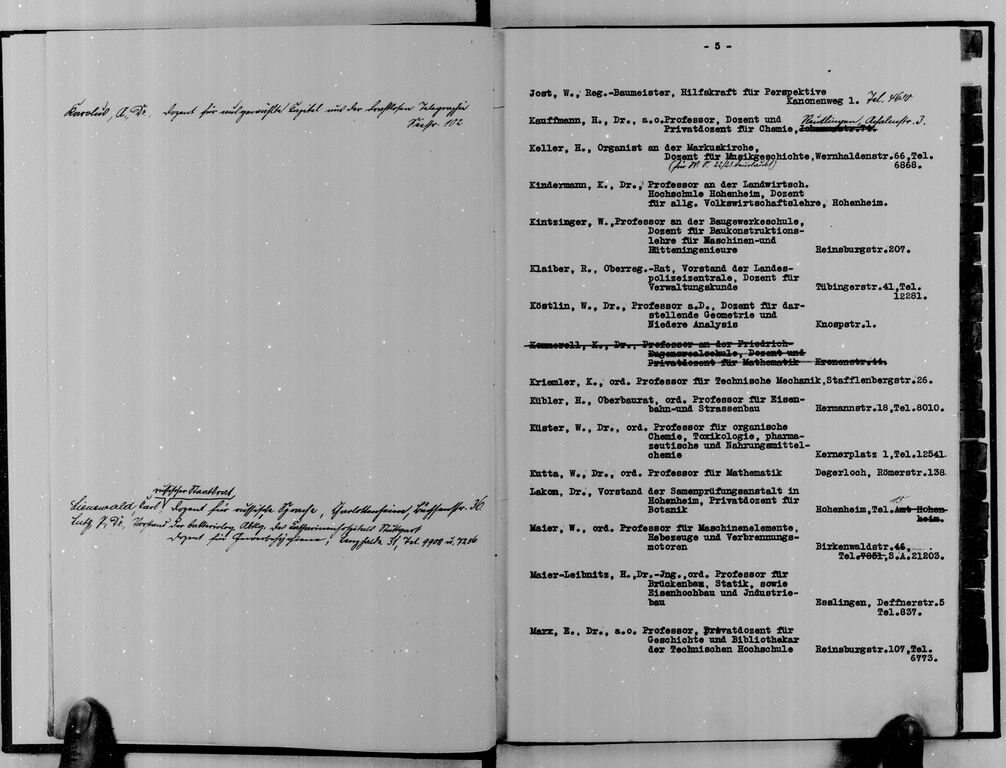 Karolus, A. Dr. Dozent für ausgewählte Kapitel aus der drahtlosen Telegraphie
Seestr. 102
russischer Staatsrat
Lienewald, Carl, Dozent für russische Sprache, Charlottenheim, 36
Lutz, Dr., Vorstand der bakteriolog. Abtlg. des Katharinenhospitals Stuttgart
Dozent für Gewerbehygiene, 31, Tel. 9908 u. 7256
- 5 -
Jost, W., Reg.-Baumeister, Hilfskraft für Perspektive
Kanonenweg 1. Tel. 4640
Kauffmann, H., Dr., a.o.Professor, Dozent und Reutlingen, 3.
Privatdozent für Chemie, Johannesstr.
Keller, H., Organist an der Markuskirche,
Dozent für Musikgeschichte, Wernhaldenstr.66,Tel.
(für W. S. 22/23 beurlaubt) 6868.
Kindermann, K., Dr., Professor an der Landwirtsch.
Hochschule Hohenheim, Dozent
für allg. Volkswirtschaftslehre, Hohenheim.
Kintzinger, W.,Professor an der Baugewerkeschule,
Dozent für Baukonstruktions-
lehre für Maschinen-und
Hütteningenieure Reinsburgstr.207.
Klaiber, R., Oberreg.-Rat, Vorstand der Landes-
polizeizentrale, Dozent für
Verwaltungskunde Tübingerstr.41,Tel.
12281.
Köstlin, W., Dr., Professor a.D., Dozent für dar-
stellende Geometrie und
Niedere Analysis Knospstr.1.
Kommerell, K., Dr., Professor an der Friedrich-
Eugensrealschule, Dozent und
Privatdozent für Mathematik Kronenstr.41.
Kriemler, K., ord. Professor für Technische Mechanik,Stafflenbergstr.26.
Kübler, H., Oberbaurat, ord. Professor für Eisen-
bahn-und Strassenbau Hermannstr.18,Tel.8010.
Küster, W., Dr., ord. Professor für organische
Chemie, Toxikologie, pharma-
zeutische und Nahrungsmittel-
chemie Kernerplatz 1,Tel.12541.
Kutta, W., Dr., ord. Professor für Mathematik Degerloch, Römerstr.138.
Lakon, Dr., Vorstand der Samenprüfungsanstalt in
Hohenheim, Privatdozent für 15
Botanik Hohenheim,Tel.Amt Hohen-
heim.
Maier, W., ord. Professor für Maschinenelemente,
Hebezeuge und Verbrennungs-
motoren Birkenwaldstr.46,
Tel.7851,S.A.21203.
Maier-Leibnitz, H.,Dr.-Jng.,ord. Professor für
Brückenbau, Statik, sowie
Eisenhochbau und Jndustrie-
bau Esslingen, Deffnerstr.5
Tel.837.
Marx, E., Dr., a.o. Professor, Privatdozent für
Geschichte und Bibliothekar
der Technischen Hochschule Reinsburgstr.107,Tel.
6773.